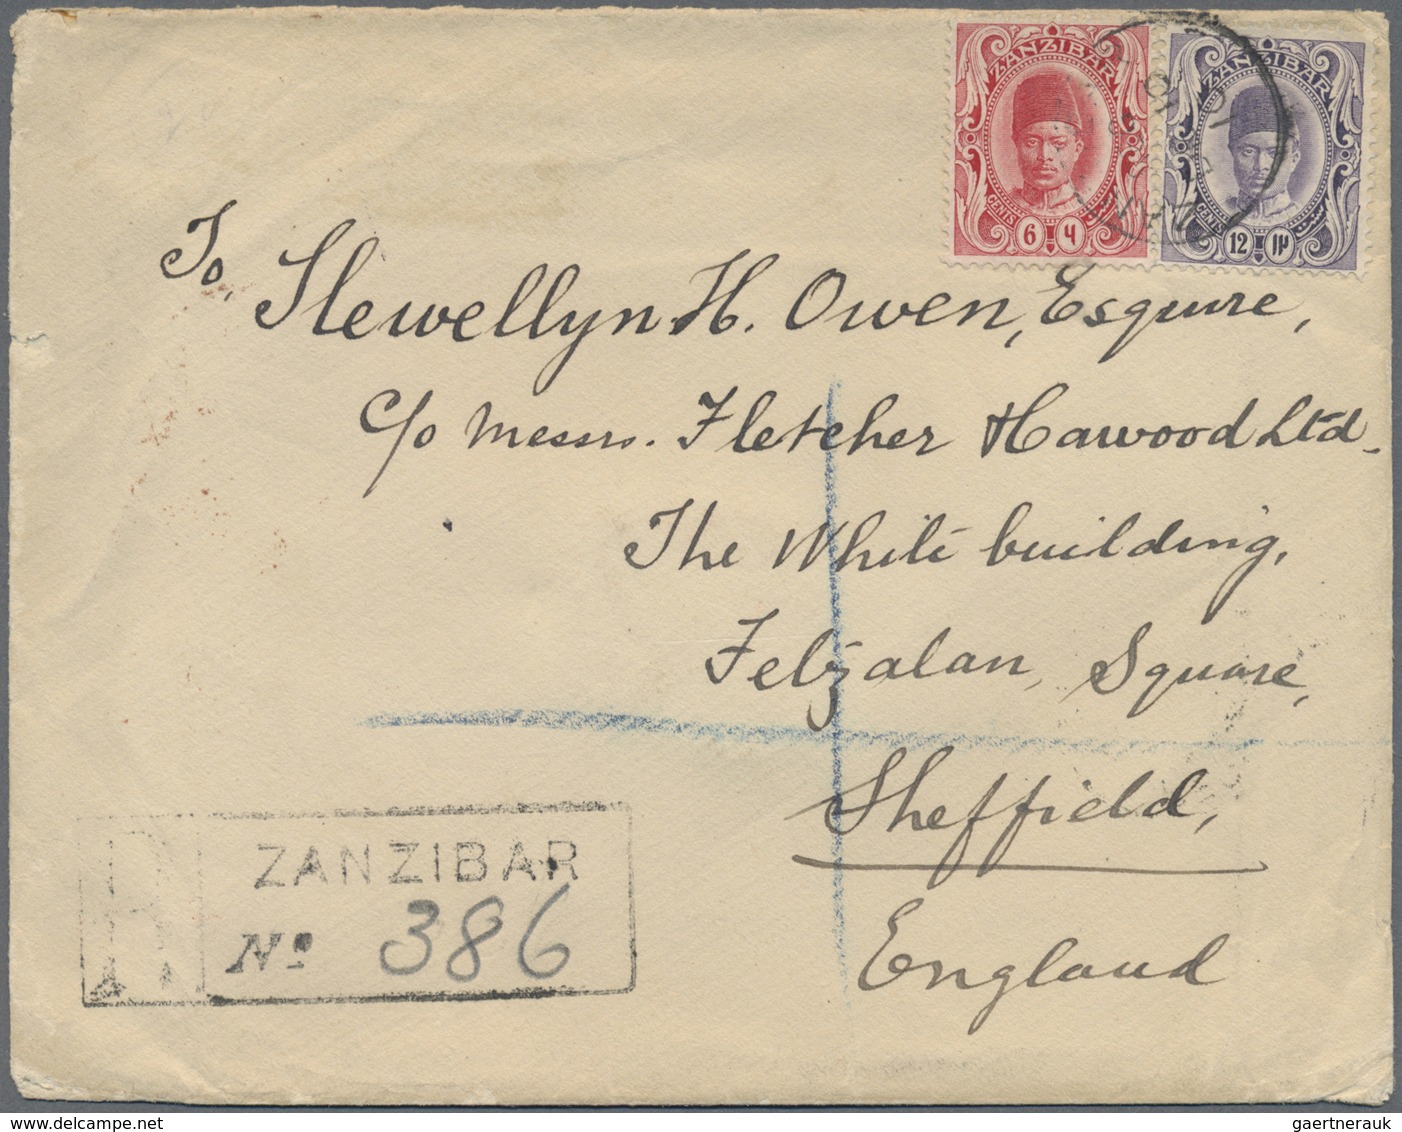 ZANZIBAR
CENTS
6 ٦
ZANZIBAR
CENTS
12 ١٢
To,
Llewellyn H. Owen, Esquire,
c/o Messrs. Fletcher Hawood Ltd.
The White building,
Felzalan Square,
Sheffield,
England
R
ZANZIBAR
Nº 386
gaertnerauk